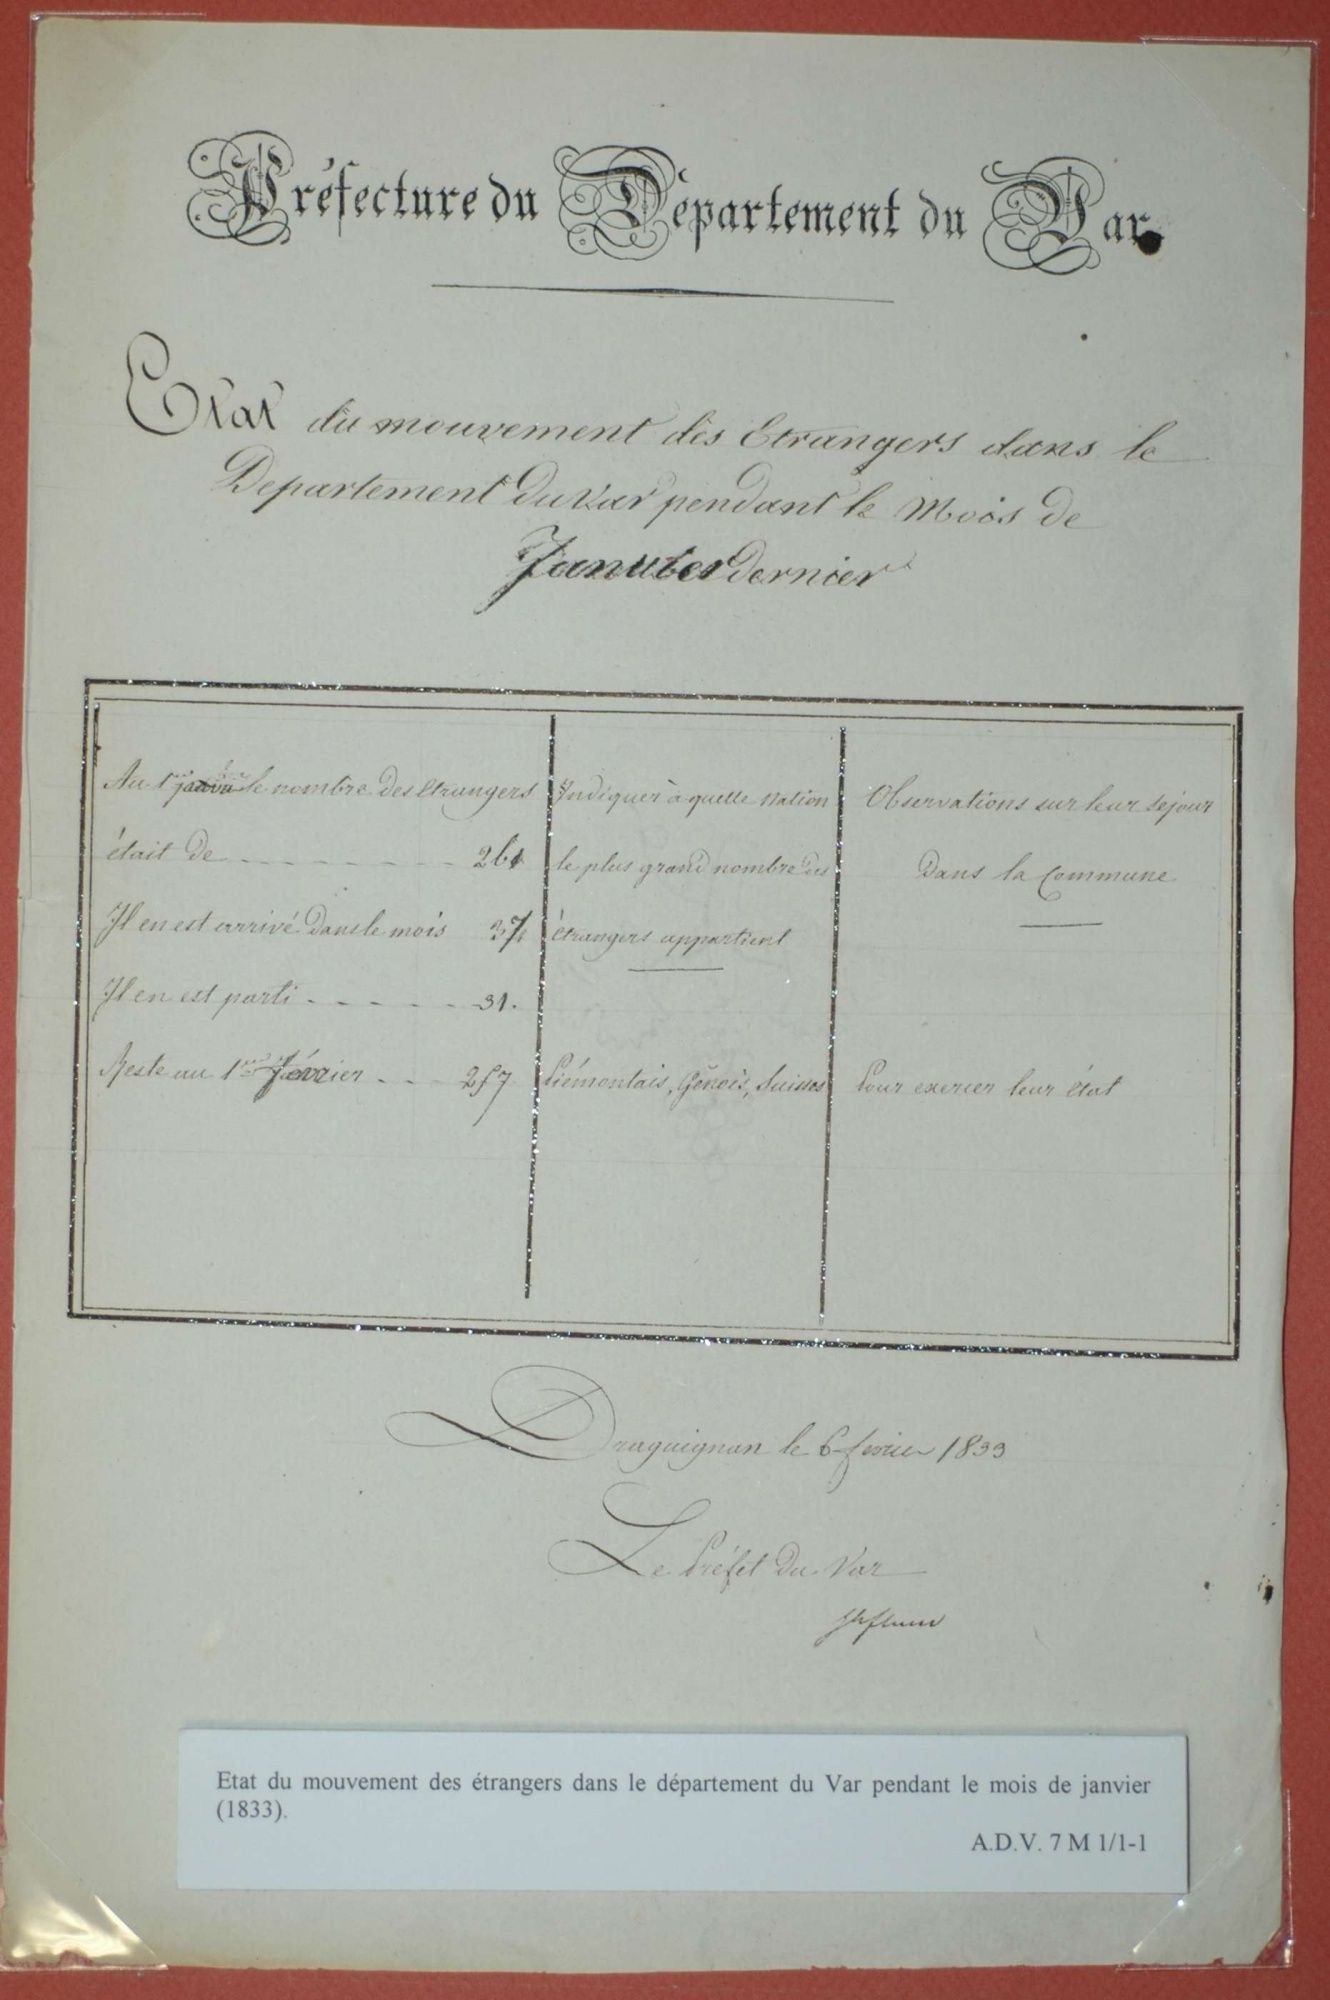 Préfecture du Département du Var
Etat du mouvement des Etrangers dans le
Departement du Var pendant le Mois de
Janvier dernier
Au 1er janvier le nombre des Etrangers
était de 261
Il en est arrivé dans le mois 37
Il en est parti 31.
Reste au 1er Février 257
Indiquer à quelle Nation
le plus grand nombre des
étrangers appartient
Piémontais, Génois, Suisses
Observations sur leur séjour
dans la Commune
Pour exercer leur état
Draguignan le 6 fevrier 1833
Le Préfet du Var
Etat du mouvement des étrangers dans le département du Var pendant le mois de janvier
(1833).
A.D.V. 7 M 1/1-1